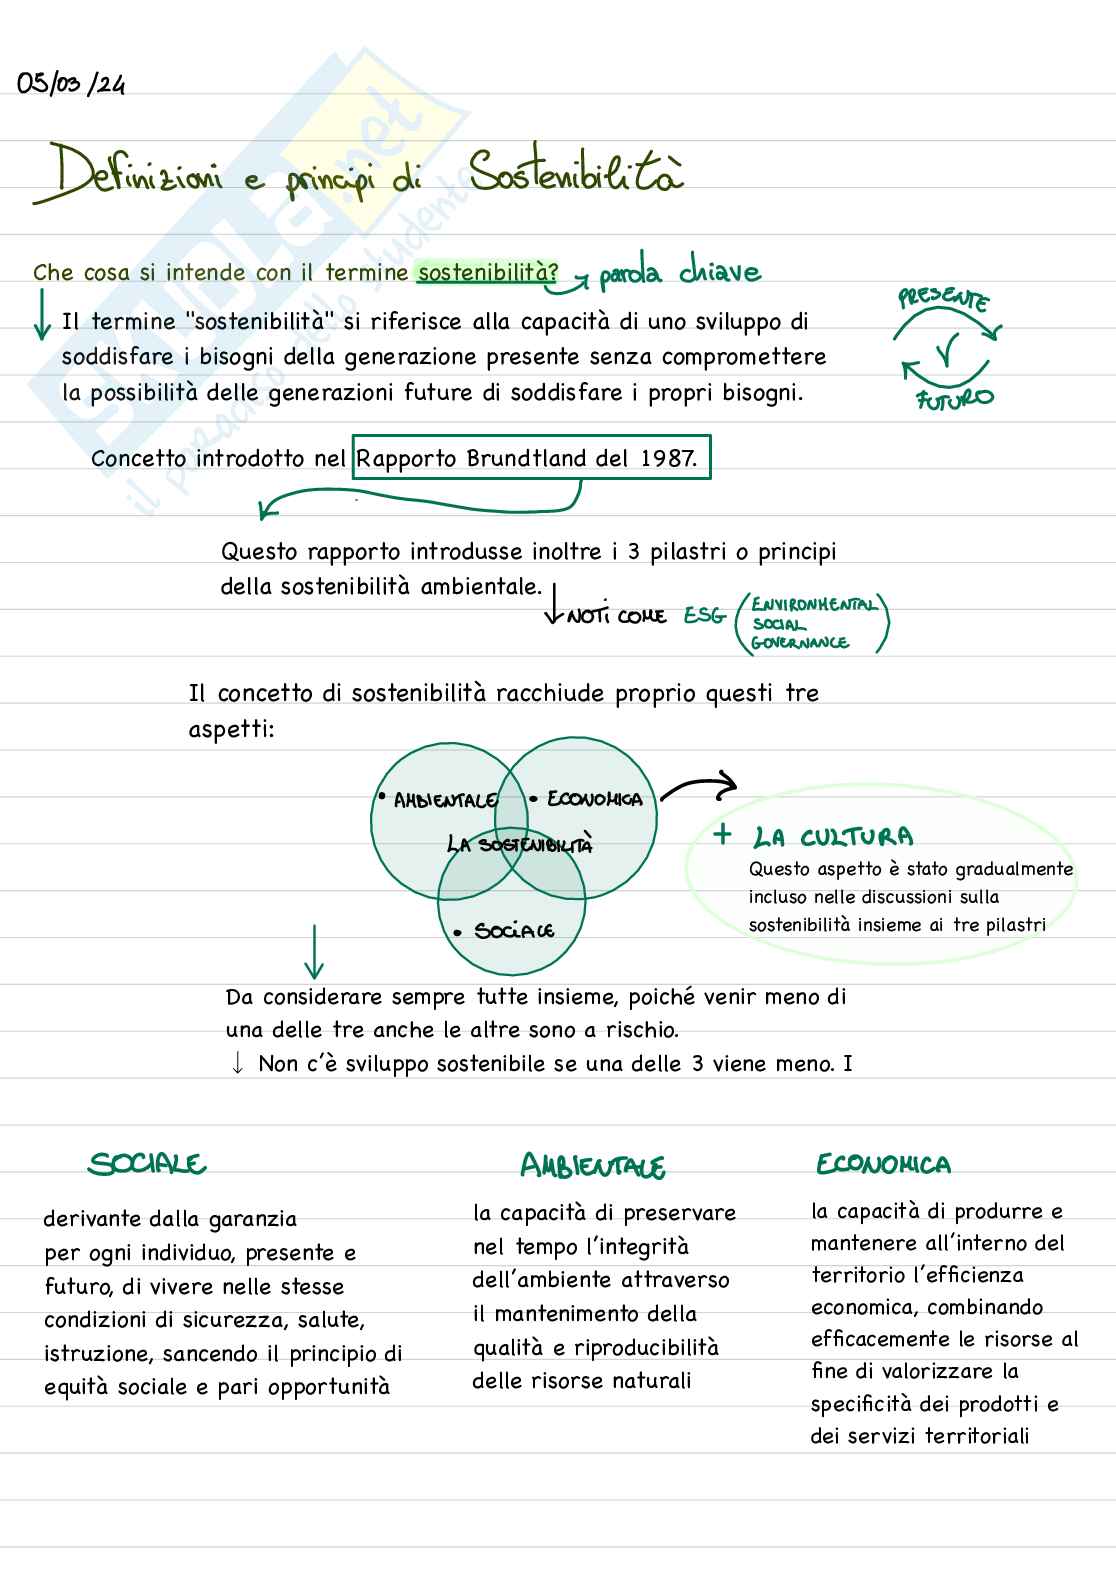 05/03/24
Definizioni e principi di Sostenibilità
Che cosa si intende con il termine sostenibilità? parola chiave
Il termine "sostenibilità" si riferisce alla capacità di uno sviluppo di
soddisfare i bisogni della generazione presente senza compromettere
la possibilità delle generazioni future di soddisfare i propri bisogni.
PRESENTE
FUTURO
Concetto introdotto nel Rapporto Brundtland del 1987.
Questo rapporto introdusse inoltre i 3 pilastri o principi
della sostenibilità ambientale.
NOTI COME ESG (ENVIRONMENTAL
SOCIAL
GOVERNANCE)
Il concetto di sostenibilità racchiude proprio questi tre
aspetti:
• AMBIENTALE • ECONOMICA
LA SOSTENIBILITÀ
• SOCIALE
+ LA CULTURA
Questo aspetto è stato gradualmente
incluso nelle discussioni sulla
sostenibilità insieme ai tre pilastri
Da considerare sempre tutte insieme, poiché venir meno di
una delle tre anche le altre sono a rischio.
↓ Non c'è sviluppo sostenibile se una delle 3 viene meno. I
SOCIALE
derivante dalla garanzia
per ogni individuo, presente e
futuro, di vivere nelle stesse
condizioni di sicurezza, salute,
istruzione, sancendo il principio di
equità sociale e pari opportunità
AMBIENTALE
la capacità di preservare
nel tempo l'integrità
dell'ambiente attraverso
il mantenimento della
qualità e riproducibilità
delle risorse naturali
ECONOMICA
la capacità di produrre e
mantenere all'interno del
territorio l'efficienza
economica, combinando
efficacemente le risorse al
fine di valorizzare la
specificità dei prodotti e
dei servizi territoriali
SKUOLA.net
il paradiso dello studente